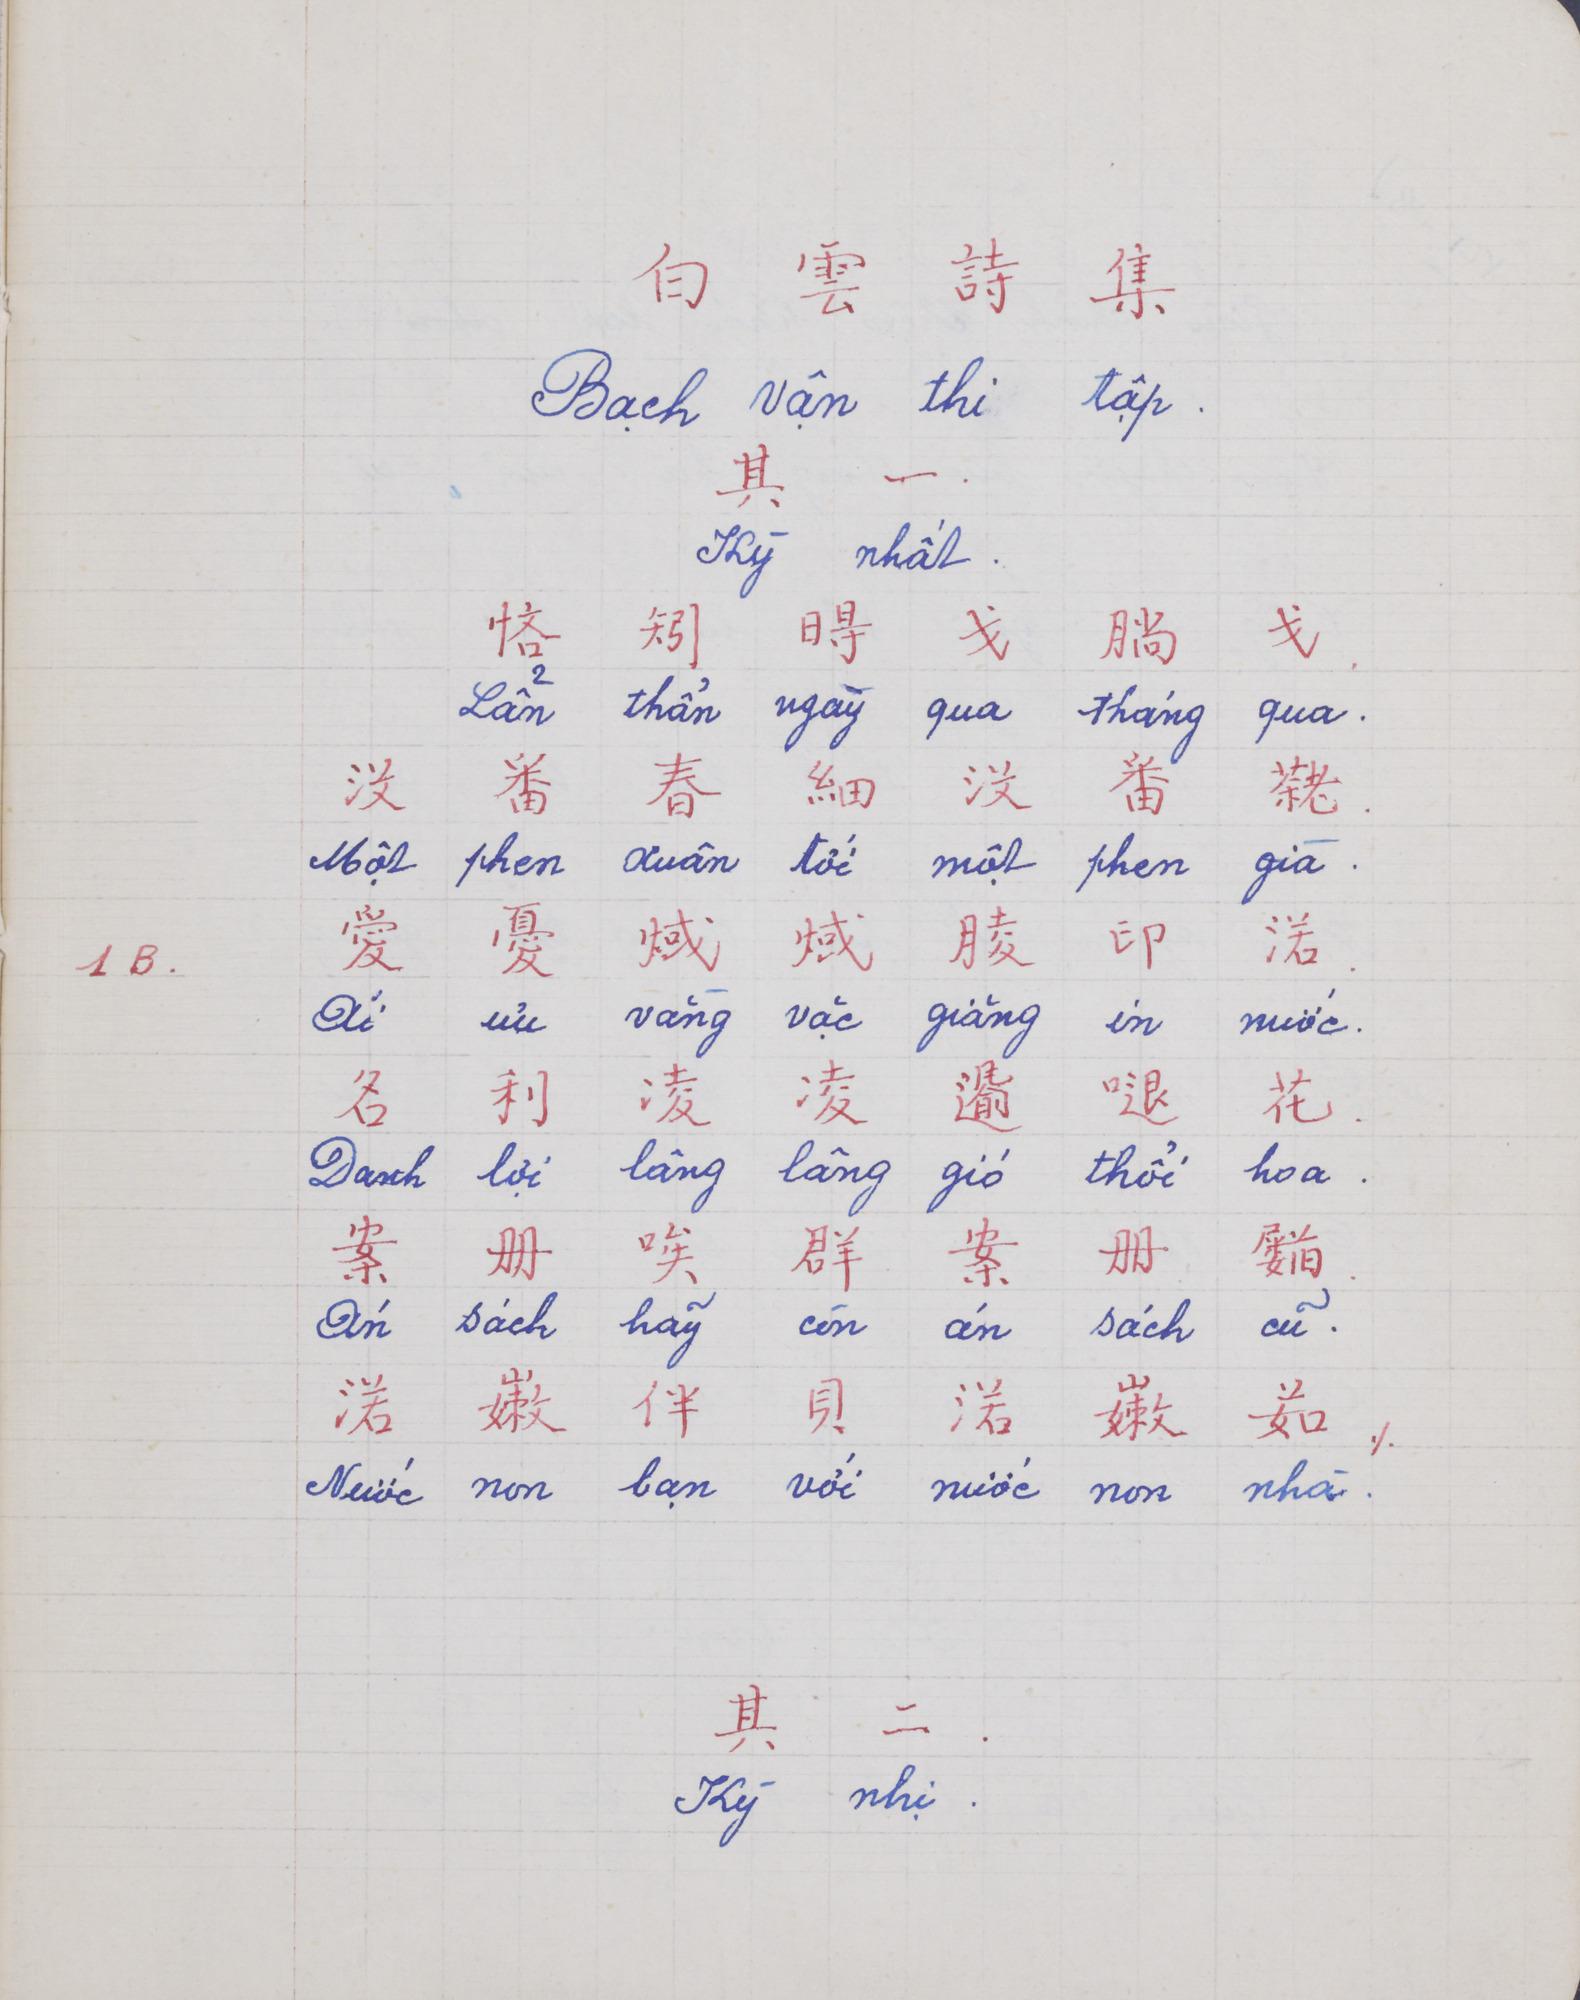 白雲詩集
Bạch vận thi tập.
其一.
Kỳ nhất.
㤩矧𣈗戈𦛌戈.
Lẩn thẩn ngày qua tháng qua.
没番春細没番𦓅.
Một phen xuân tới một phen già.
愛憂𤊧𤊧𦝄印渃.
1B.
Ái ưu vằng vặc giăng in nước.
名利淩淩𨗺𠿿花.
Danh lợi lâng lâng gió thổi hoa.
案册唉群案册𡳵.
Án sách hãy còn án sách cũ.
渃𡽫伴貝渃𡽫茹
Nước non bạn với nước non nhà.
其二.
Kỳ nhị.